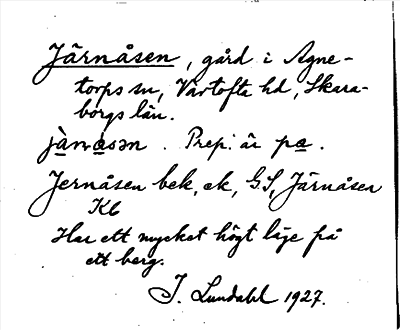 Järnåsen, gård i Agne-
torps sn, Vartofta hd, Skara-
borgs län.
jà̤nåsən. Prep. är på.
Jernåsen bek, ek, GS, Järnåsen
Kb
Har ett mycket högt läge på
ett berg.
J. Lundahl 1927.